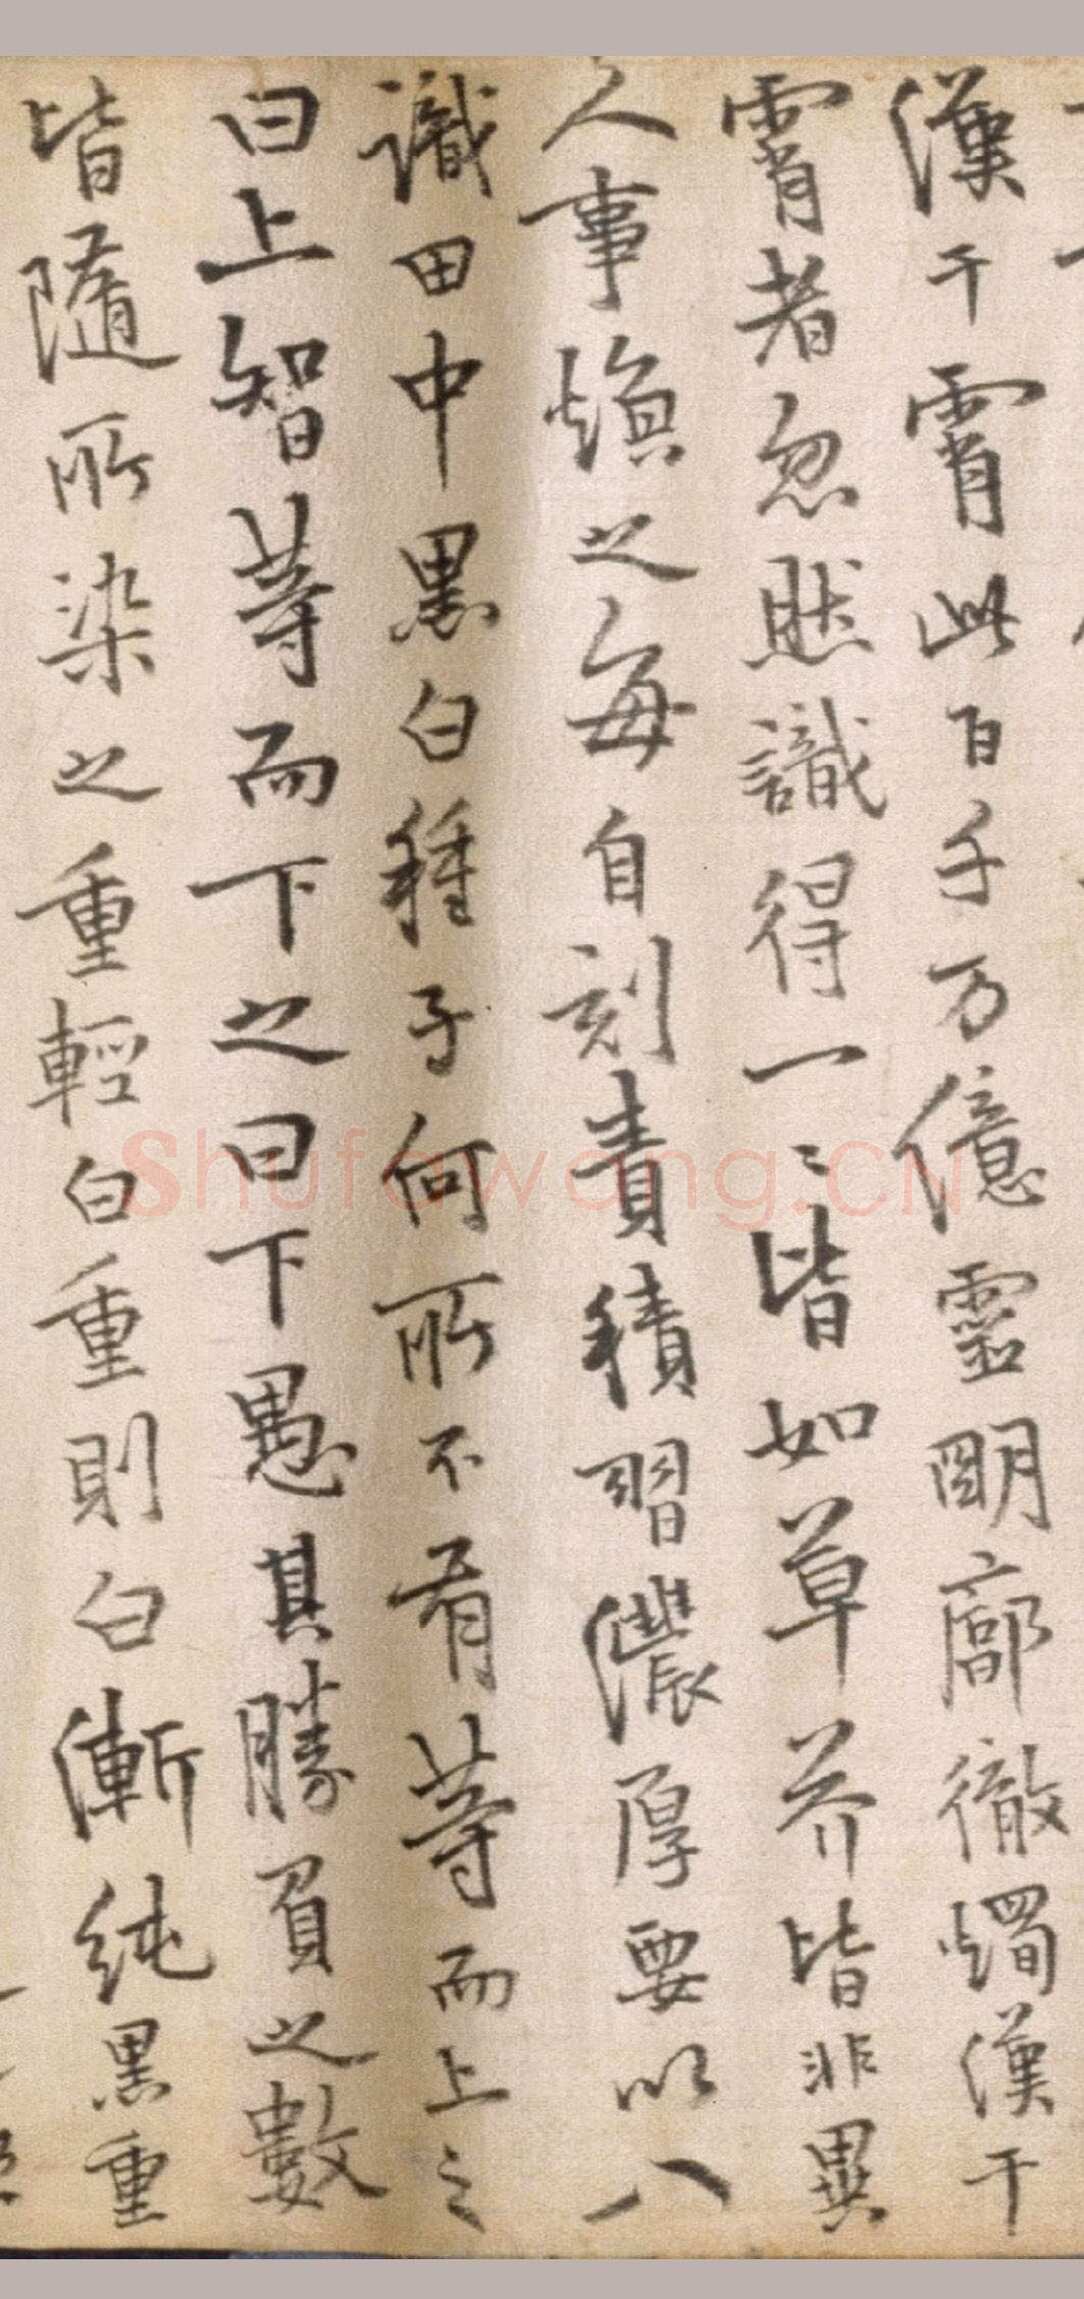 漢干霄此百千万億靈明廓徹燭漢干
霄者忽然識得一〻皆如草芥皆非異
人事煩之每自刻責積習濃厚要以八
識田中黑白種子何所不有等而上之
曰上智等而下之曰下愚其勝負之數
皆隨所染之重輕白重則白漸純黑重
Shufawang.CN